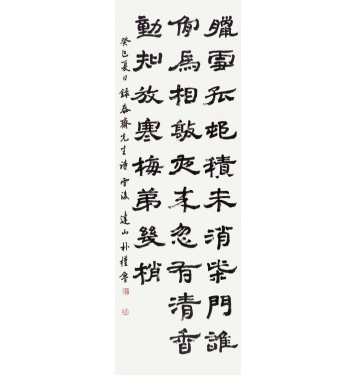 臘雪孤邨積未消柴門誰
肯爲相敲夜來忽有清香
動知放寒梅第幾梢
癸巳夏日錄泰齋先生詩雪後 山朴